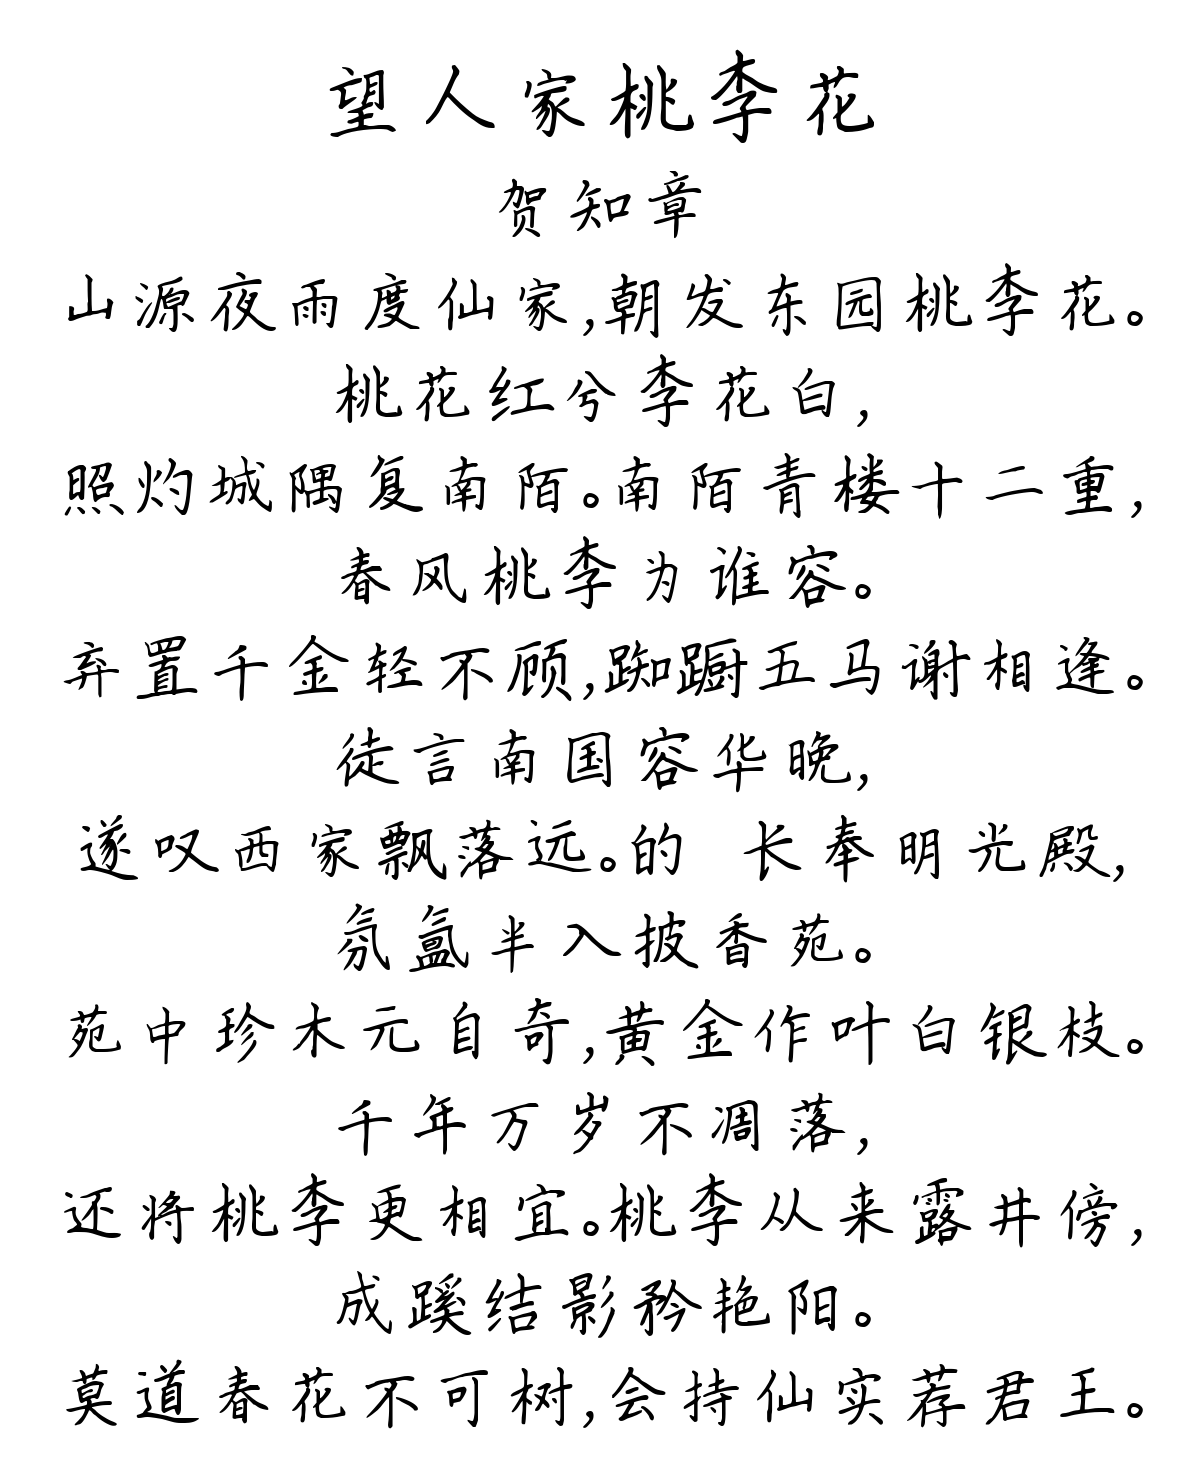 望人家桃李花
贺知章
山源夜雨度仙家,朝发东园桃李花。
桃花红兮李花白,
照灼城隅复南陌。南陌青楼十二重,
春风桃李为谁容。
弃置千金轻不顾,踟蹰五马谢相逢。
徒言南国容华晚,
遂叹西家飘落远。的 长奉明光殿,
氛氲半入披香苑。
苑中珍木元自奇,黄金作叶白银枝。
千年万岁不凋落,
还将桃李更相宜。桃李从来露井傍,
成蹊结影矜艳阳。
莫道春花不可树,会持仙实荐君王。